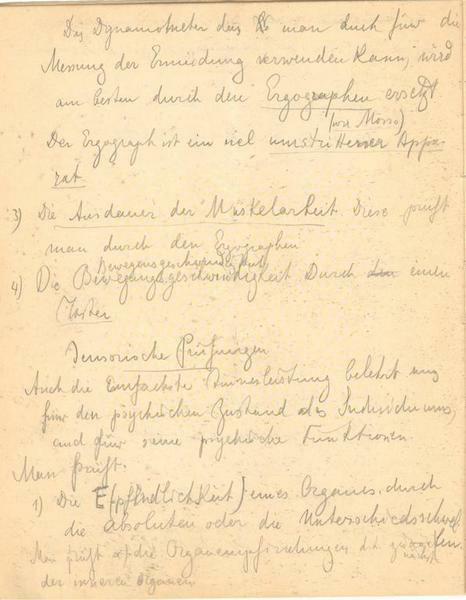 Das Dynamometer das man auch für die
Messung der Ermüdung verwenden kann, wird
am besten durch den Ergographen ersetzt
(von Mosso)
Der Ergograph ist ein viel umstrittener Appa-
rat
3) Die Ausdauer der Muskelarbeit. Diese prüft
man durch den Ergographen
Bewegungsgeschwindigkeit
4) Die Bewegungsgeschwindigkeit durch einen
Taster
Sensorische Prüfungen
Auch die Einfachste Sinnesleistung belehrt uns
für den psychischen Zustand des Individuums,
und für seine psychische Funktionen.
Man prüft:
1) Die E(pfindlichkeit) eines Organes, durch
die absoluten oder die Unterschiedsschwel-
len.
Man prüft die Organempfindungen d.h.
der inneren Organen